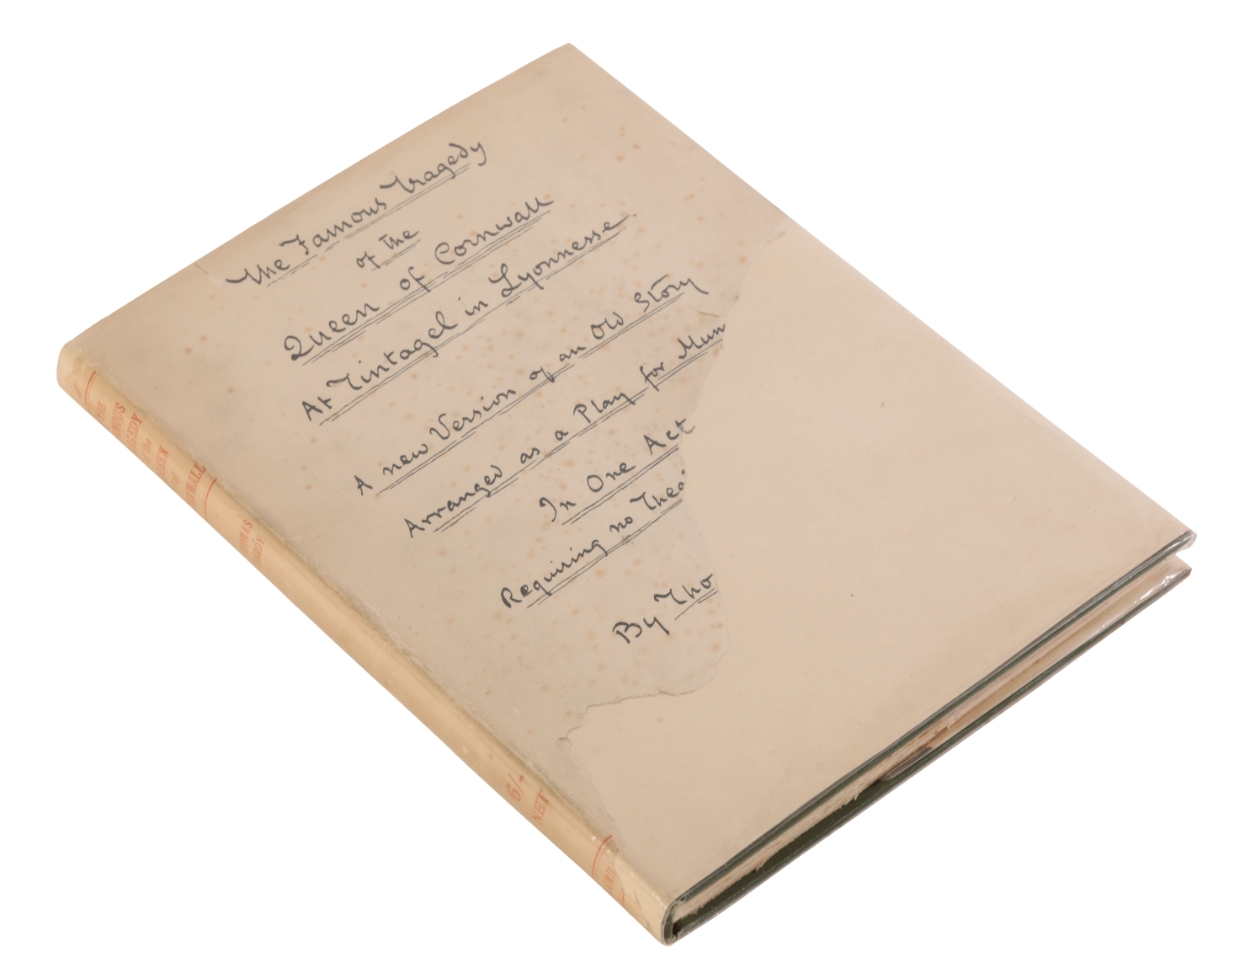 The Famous Tragedy
of the
Queen of Cornwall
At Tintagel in Lyonnesse.
A new Version of an Old Story
Arranged as a Play for Mum
In One Act
Requiring no Thea
By Tho
THE
MOUS
AGEDY
of the
EEN
of
NWALL
OMAS
RDY
6/-
NET